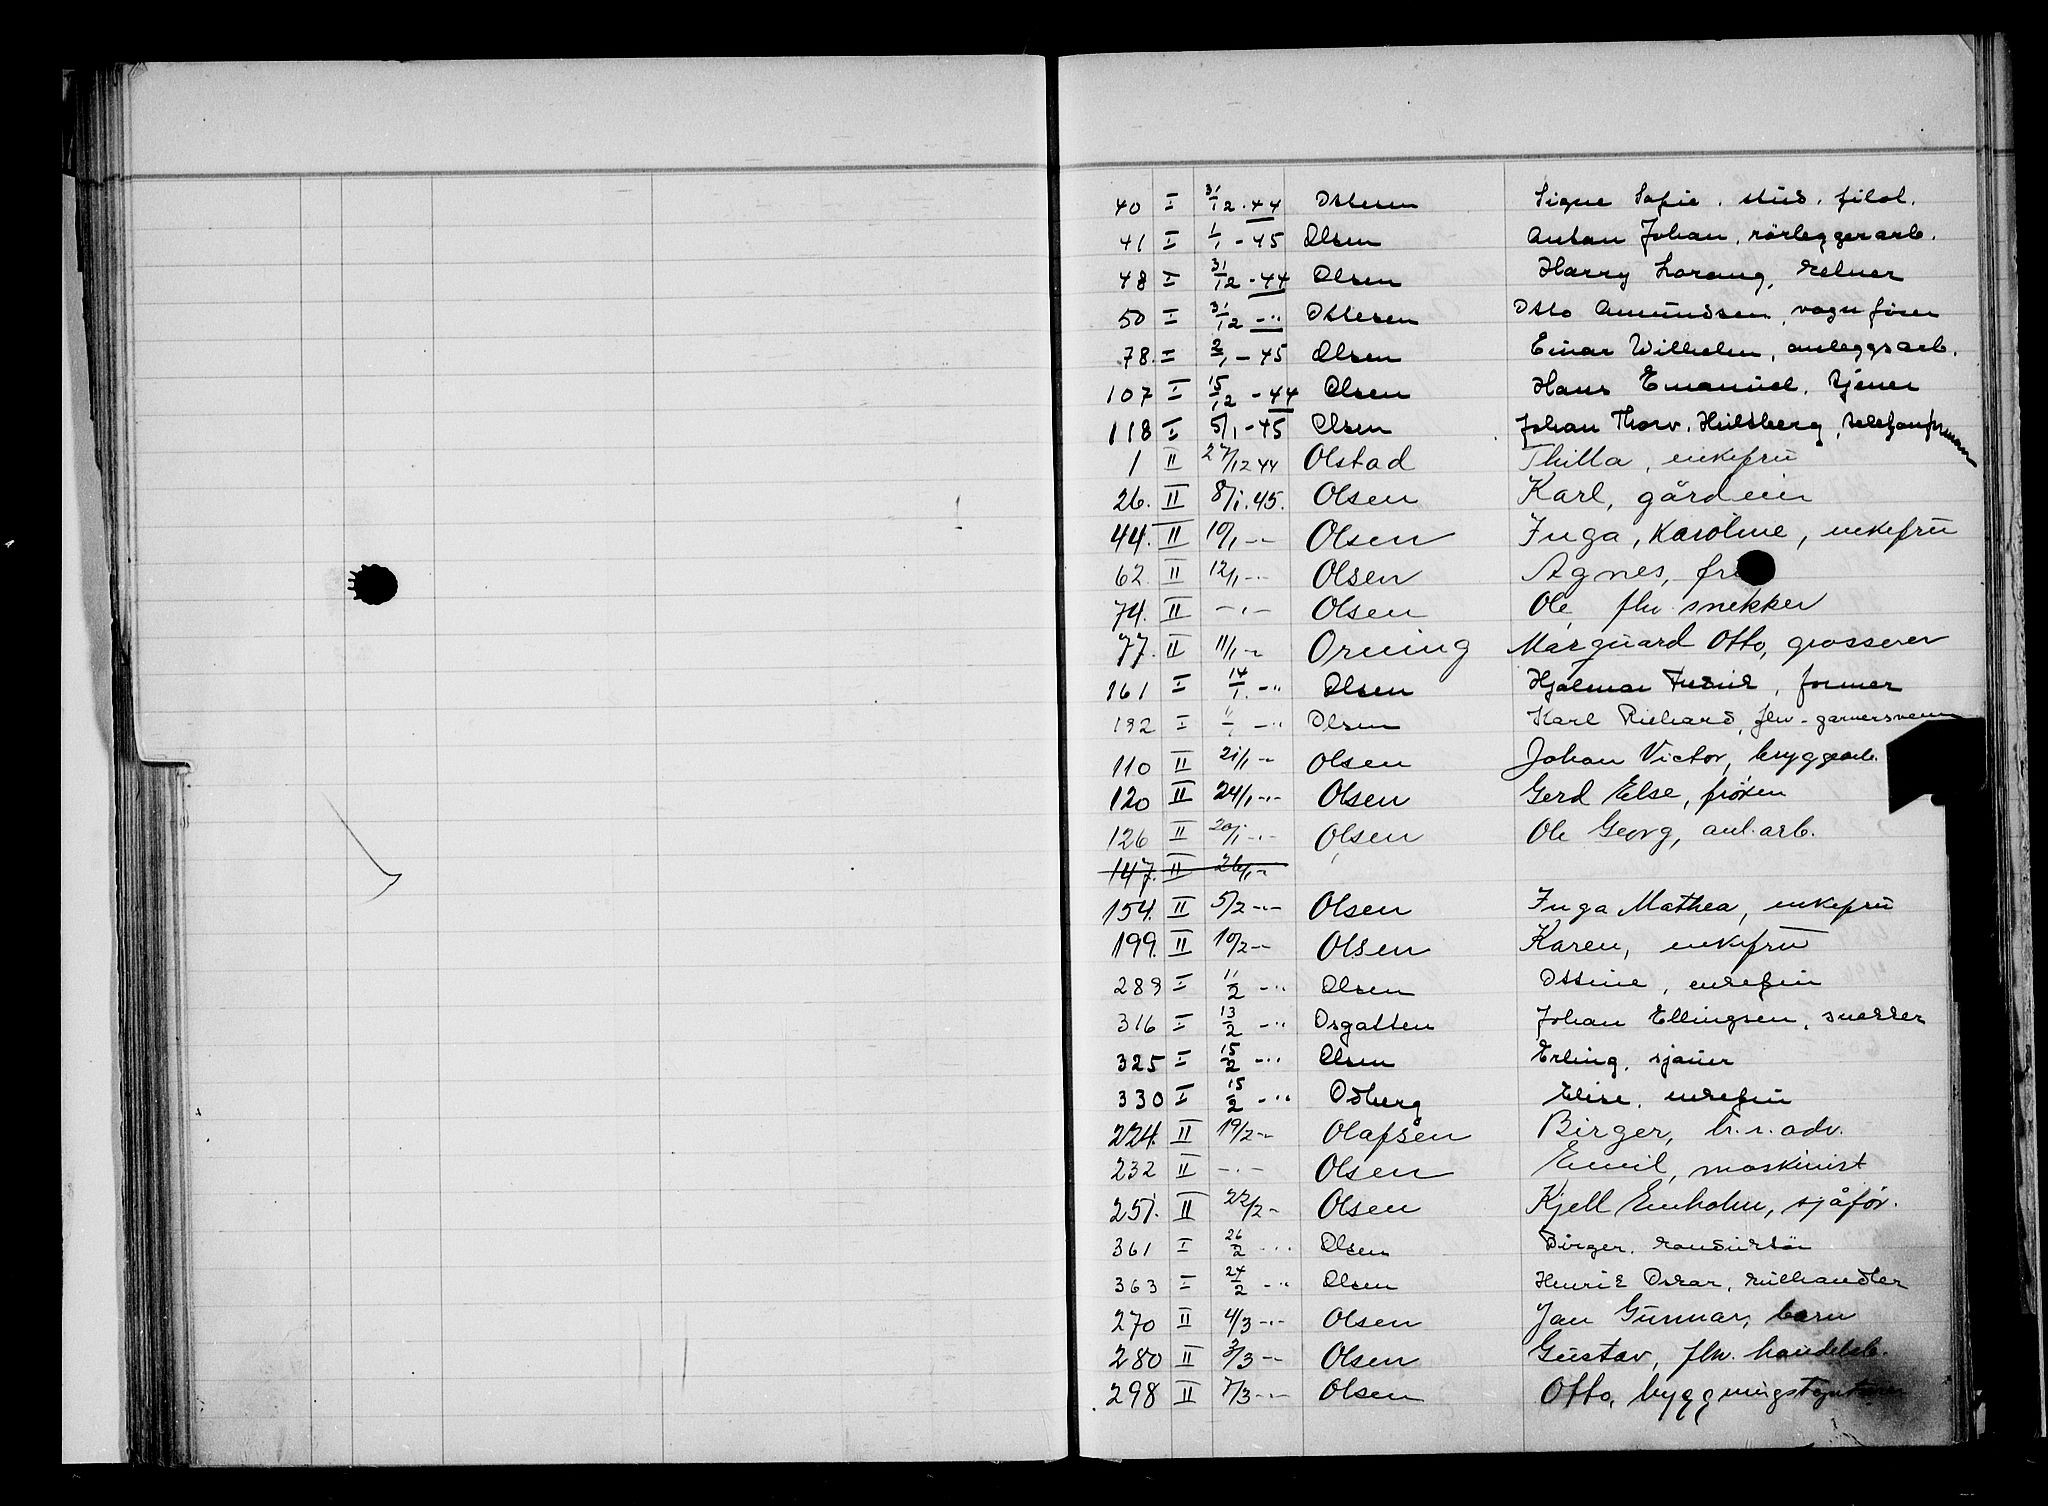 40 I 31/12-44 Ottesen Signe Sofie, stud. filol.
41 I 1/1-45 Olsen Anton Johan, rørleggerarb.
48 I 31/12-44 Olsen Harry Lorang, kelner
50 I 31/12 -" Ottesen Otto Amundsen, vognfører
78. I 2/1-45 Olsen Einar Wilhelm, anleggsarb.
107 I 15/12-44 Olsen Hans Emanuel, tjener
118 I 5/1-45 Olsen Johan Thorv. Hultsberg, telefonformann
1 II 27/12 44 Olstad Thilla, enkefru
26. II 8/1.45. Olsen Karl, gårdeier
44. II 10/1 -"- Olsen Inga, Karoline, enkefru
62 II 12/1 -"- Olsen Agnes,
74. II -"- Olsen Ole, fhv. snekker
77. II 11/1 -"- Orning Marguard Otto, grosserer
161 I 14/1. -" Olsen Hjalmar Fredrik, former
192 I 11/1 -" Olsen Karl Richard, fhv. garversvenn
110 II 21/1 -"- Olsen Johan Victor, bryggearb.
120 II 24/1 -"- Olsen Gerd Else, frøken
126 II 20/1 -"- Olsen Ole Georg, anl.arb.
147. II 26/1 -"-
154. II 5/2 -"- Olsen Inga Mathea, enkefru
199. II 10/2 -"- Olsen Karen, enkefru
289 I 11/2 -" Olsen Ottine, enkefru
316 I 13/2 -" Osgatten Johan Ellingsen, snekker
325 I 15/2 -" Olsen Erling, sjauer
330 I 15/2 -" Odberg Elise, enkefru
224. II 19/2 -"- Olafsen Birger, h.r.adv.
232 II -"- Olsen Emil, maskinist
251. II 22/2 - Olsen Kjell Enholm, sjåfør.
361 I 26/2 -" Olsen Birger, konduktør
363 I 24/2 -" Olsen Henrik Oskar, kullhandler
270 II 4/3 -"- Olsen Jan Gunnar, barn
280 II 3/3 -"- Olsen Gustav, fhv. handelsb.
298 II 7/3 -"- Olsen Otto,